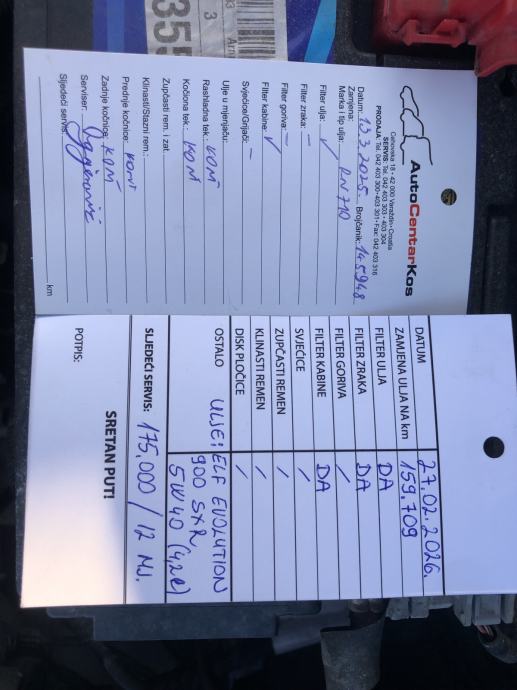 AutoCentarKos
Cehovska 18 - 42 000 Varaždin - Croatia
SERVIS: Tel. 042 403 303 • 403 304
PRODAJA: Tel. 042 403 300 • 403 301 • Fax: 042 403 316
Datum: 13.3.2025. Brojčanik: 145948
Zamjena:
Marka i tip ulja: RN 710
Filter ulja: ✓
Filter zraka: —
Filter goriva: —
Filter kabine: ✓
Svjećice/Grijači: —
Ulje u mjenjaču:
Rashladna tek.: KOM
Kočiona tek.: KOM
Zupčasti rem. i zat.
Klinasti/Stazni rem.:
Prednje kočnice: KOM
Zadnje kočnice: KOM
Serviser:
Sljedeći servis: km
DATUM 27.02.2026.
ZAMJENA ULJA NA km 159.709
FILTER ULJA DA
FILTER ZRAKA DA
FILTER GORIVA /
FILTER KABINE DA
SVJEĆICE /
ZUPČASTI REMEN /
KLINASTI REMEN /
DISK PLOČICE /
OSTALO ULJE: ELF EVOLUTION
900 SXR
5W40 (4,2l)
SLJEDEĆI SERVIS: 175.000 / 12 MJ.
SRETAN PUT!
POTPIS: